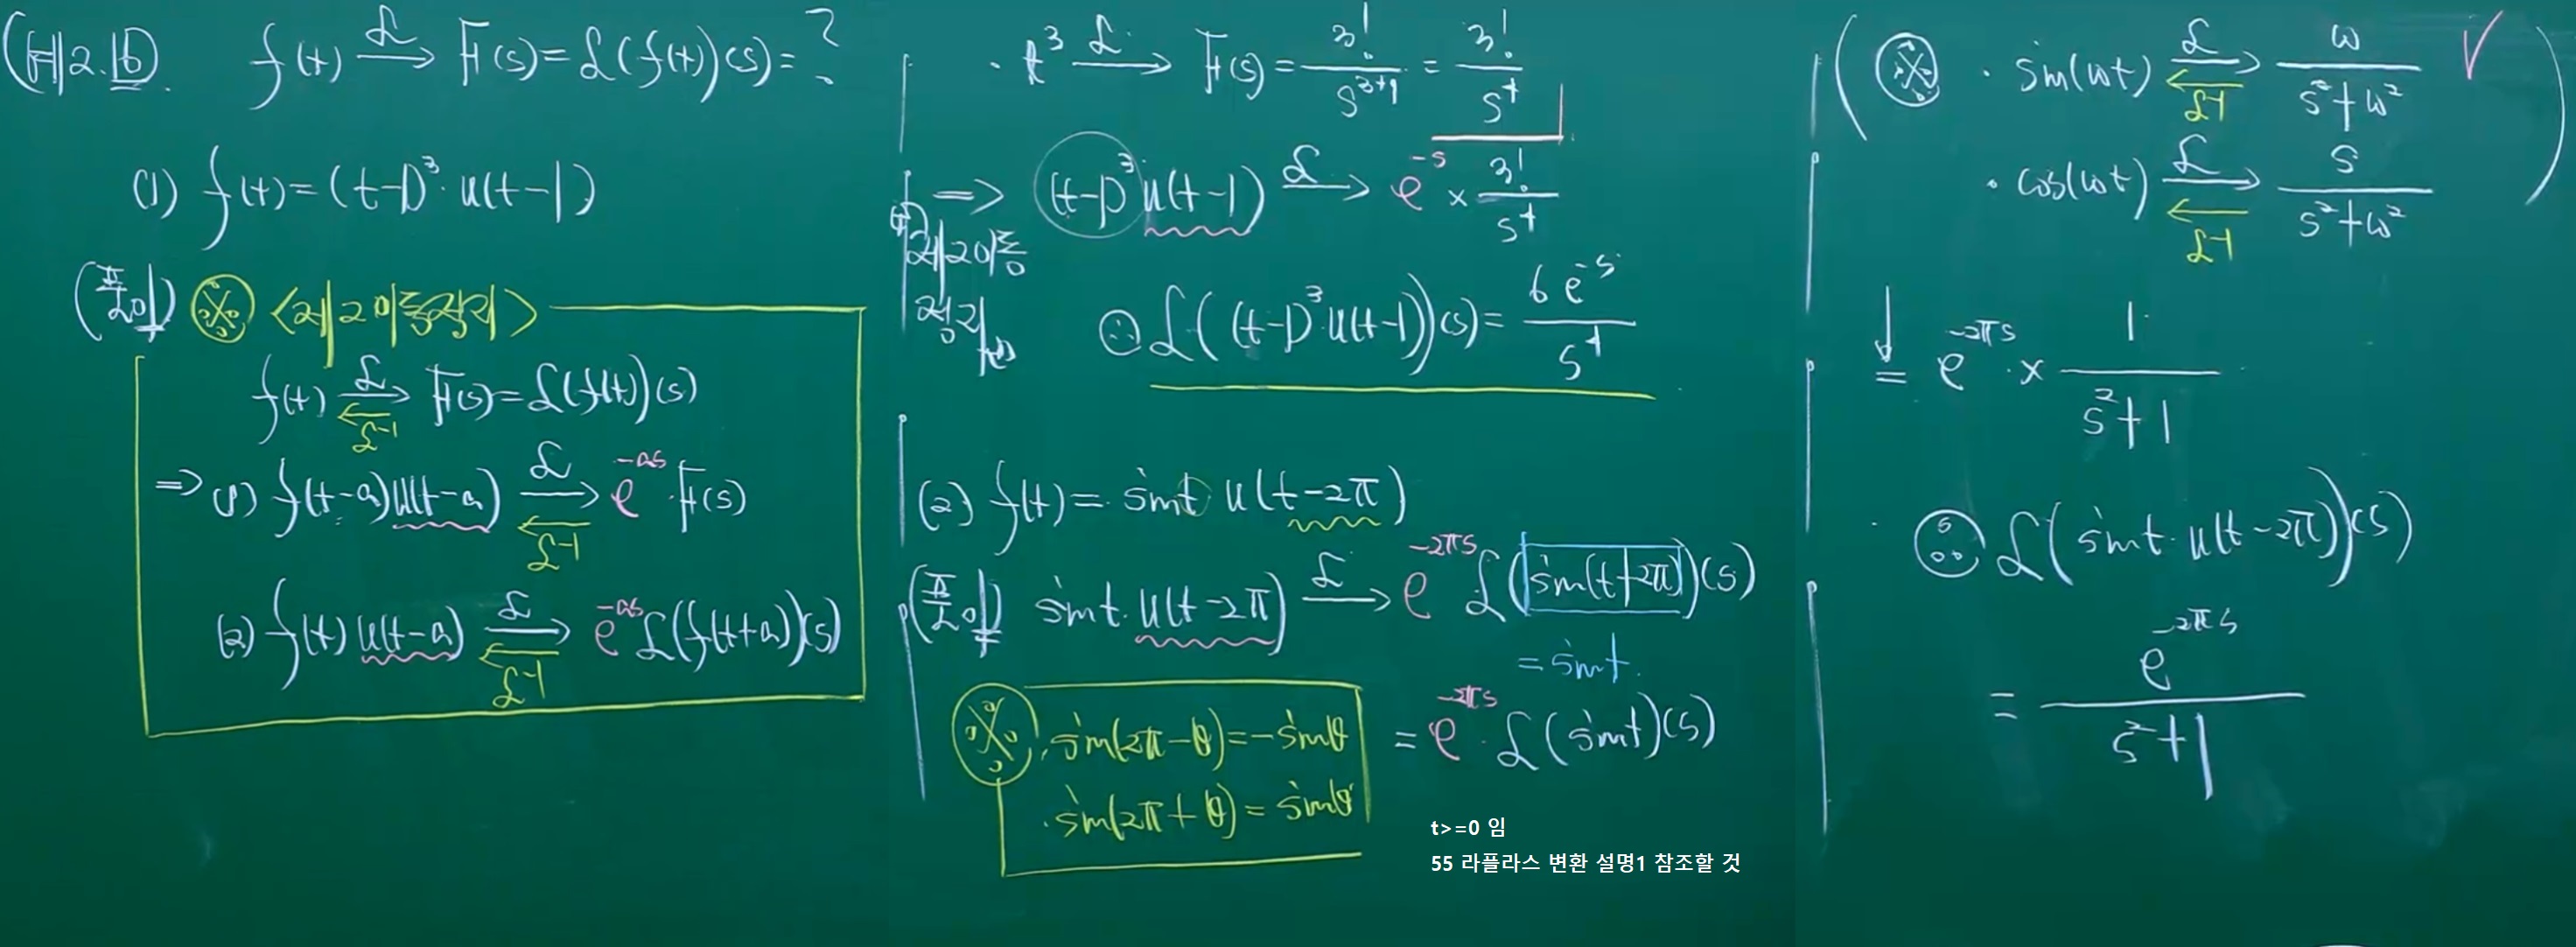 (예2.16) f(t) ℒ→ F(s)=ℒ(f(t))(s)=?
(1) f(t)=(t-1)³·u(t-1)
(풀이) ※ <제2이동정리>
f(t) ℒ→ F(s)=ℒ(f(t))(s)
←ℒ⁻¹
⇒ (1) f(t-a)u(t-a) ℒ→ e^{-as}·F(s)
←ℒ⁻¹
(2) f(t)u(t-a) ℒ→ e^{-as}ℒ(f(t+a))(s)
←ℒ⁻¹
· t³ ℒ→ F(s)=3!/s^{3+1}=3!/s⁴
⇒ (t-1)³u(t-1) ℒ→ e^{-s}×3!/s⁴
제2이동
정리
∴ ℒ((t-1)³u(t-1))(s)=6e^{-s}/s⁴
(2) f(t)=sint u(t-2π)
(풀이) sint·u(t-2π) ℒ→ e^{-2πs}ℒ(sin(t+2π))(s)
=sint.
※ ·sin(2π-θ)=-sinθ
·sin(2π+θ)=sinθ
=e^{-2πs}·ℒ(sint)(s)
t>=0 임
55 라플라스 변환 설명1 참조할 것
(※ ·sin(ωt) ℒ→ ω/(s²+ω²) √
←ℒ⁻¹
·cos(ωt) ℒ→ s/(s²+ω²))
←ℒ⁻¹
↓
= e^{-2πs}·×1/(s²+1)
∴ ℒ(sint·u(t-2π))(s)
= e^{-2πs}/(s²+1)